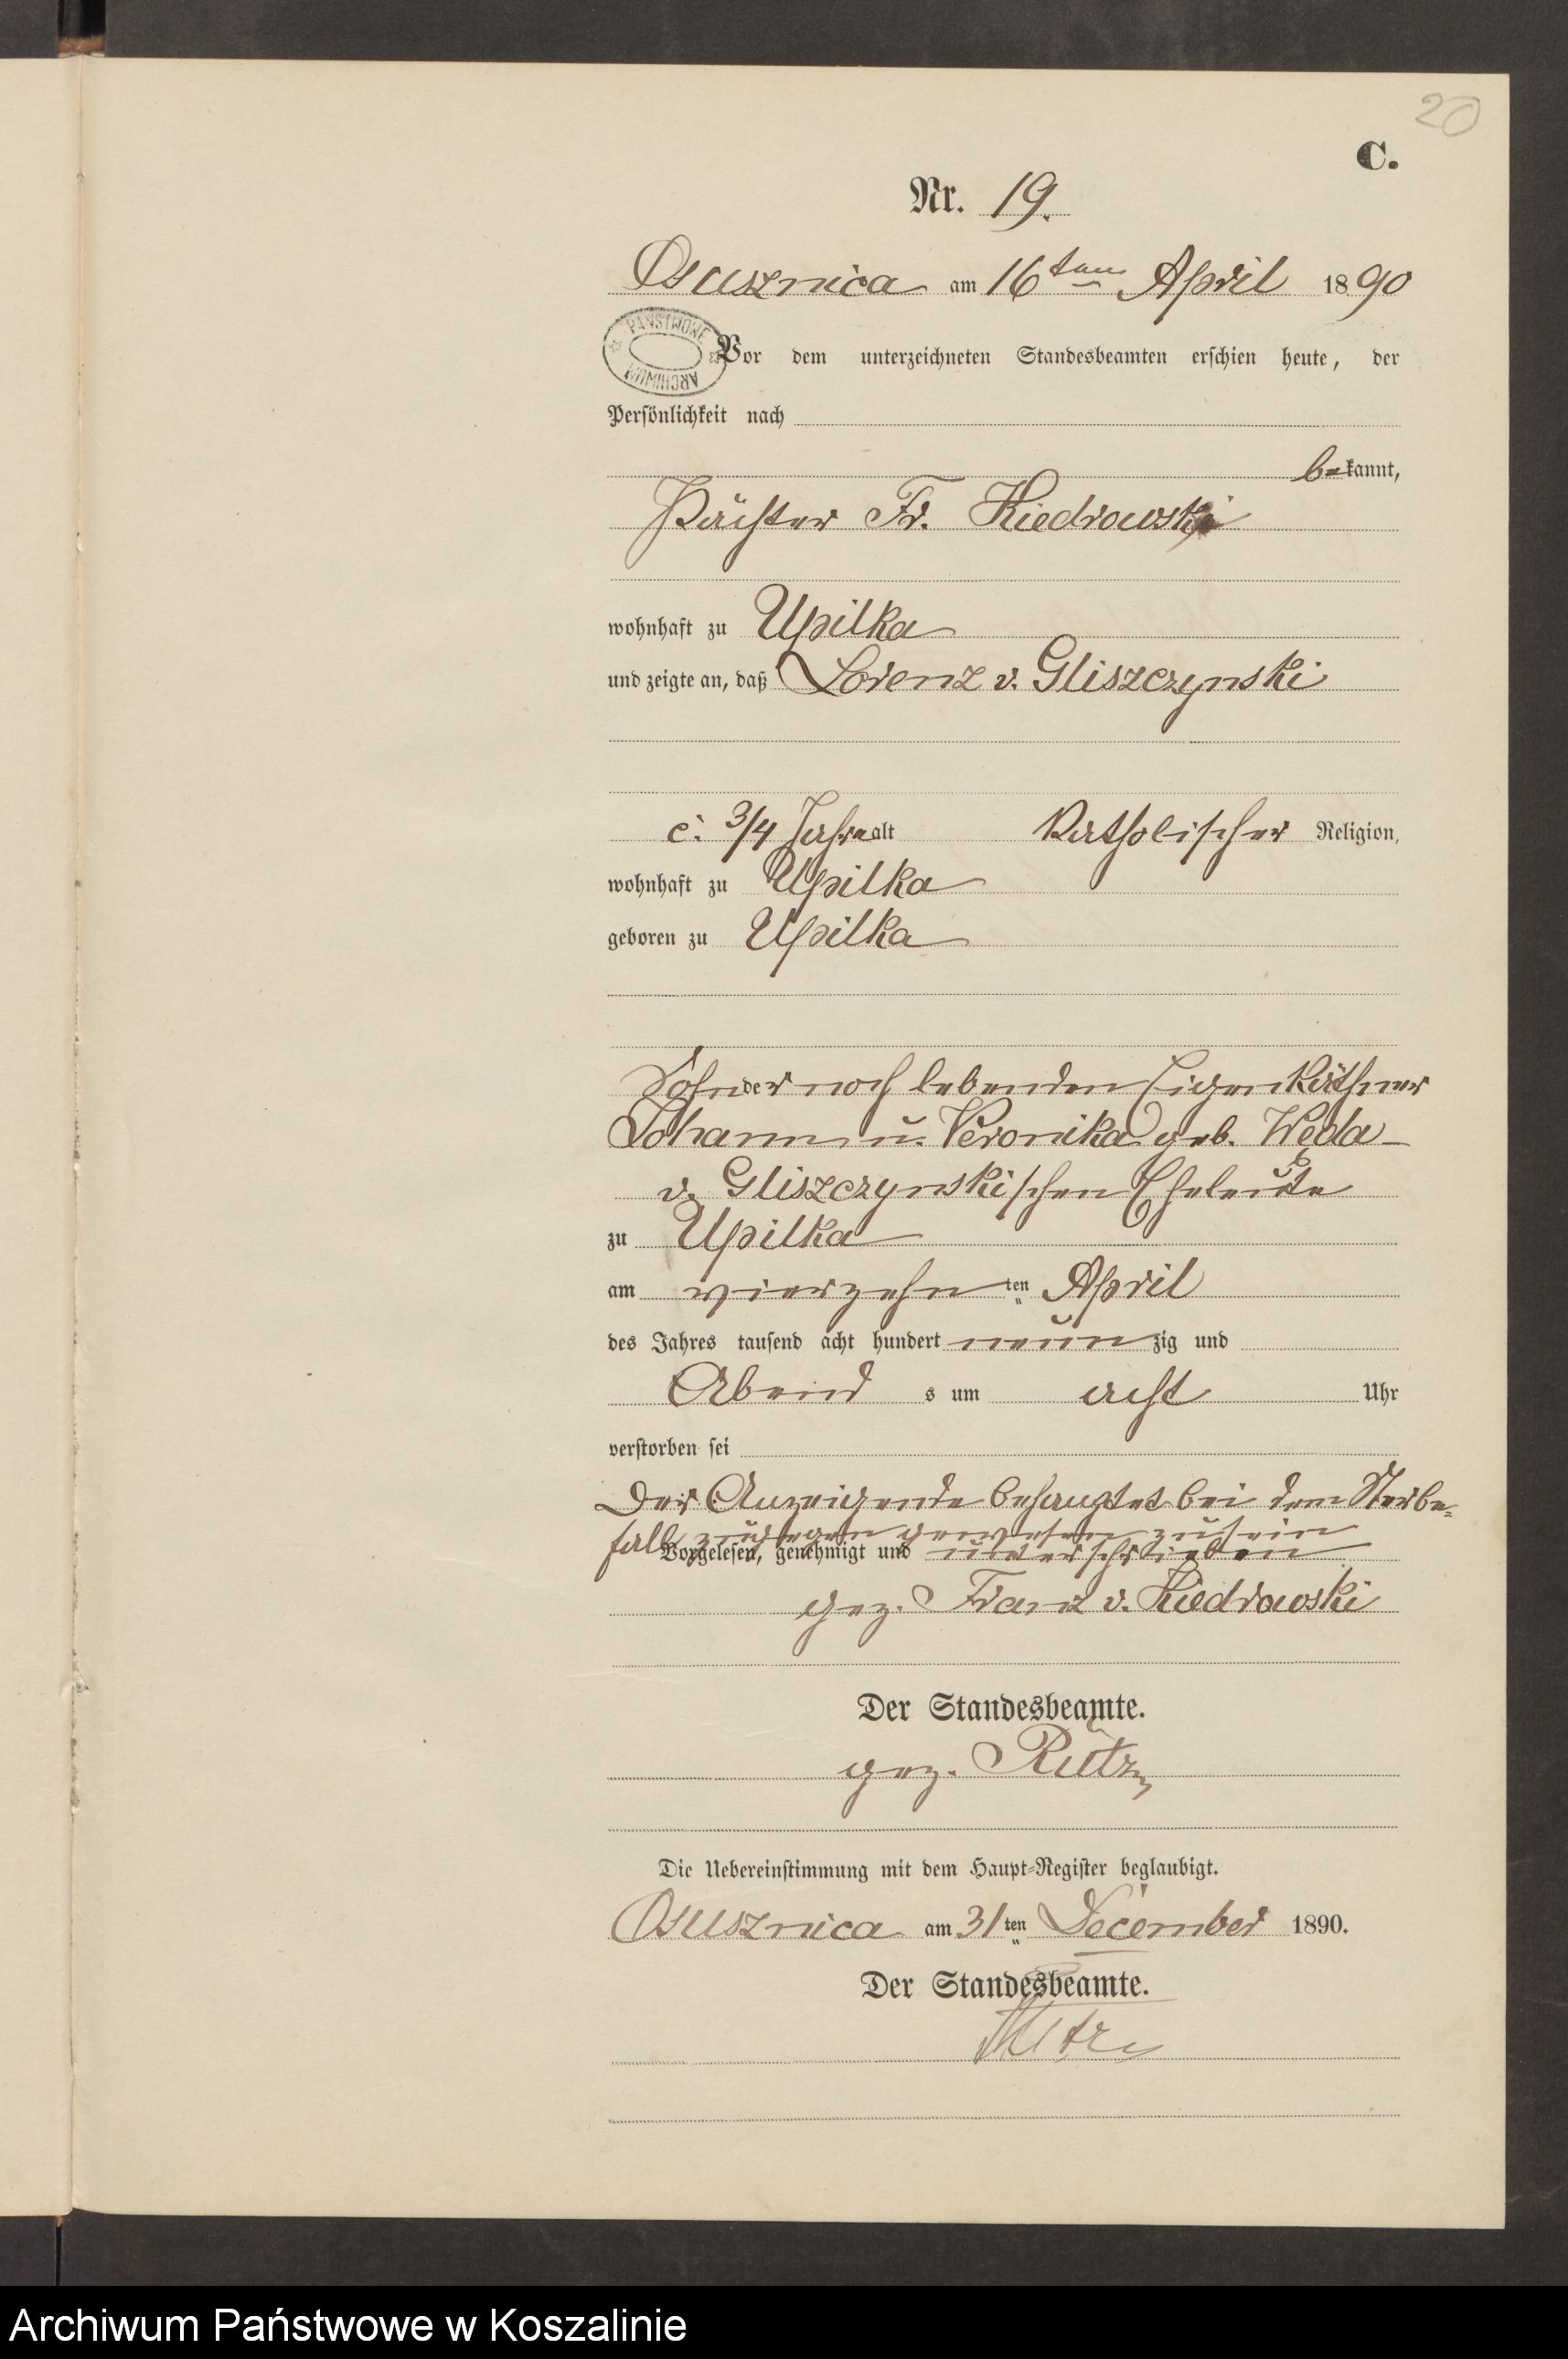 20
C.
Nr. 19.
Osusznica am 16ten April 1890
PAŃSTWOWE ARCHIWUM
Vor dem unterzeichneten Standesbeamten erschien heute, der
Persönlichkeit nach
bekannt,
Pächter Fr. Kiedrowski
wohnhaft zu Upilka
und zeigte an, daß Lorenz v. Gliszczynski
c. 3/4 Jahre alt Katholischer Religion,
wohnhaft zu Upilka
geboren zu Upilka
Sohn der noch lebenden Eigenkäthner
Johann u. Veronika geb. Węda
v. Gliszczynskischen Eheleute
zu Upilka
am vierzehnten April
des Jahres tausend acht hundert neunzig und
Abends um acht Uhr
verstorben sei
Der Anzeigende behauptet bei dem Sterbe-
fall zugegen gewesen zu sein
Vorgelesen, genehmigt und unterschrieben
gez. Franz v. Kiedrowski
Der Standesbeamte.
gez. Rutz
Die Uebereinstimmung mit dem Haupt-Register beglaubigt.
Osusznica am 31ten December 1890.
Der Standesbeamte.
Rutz
Archiwum Państwowe w Koszalinie